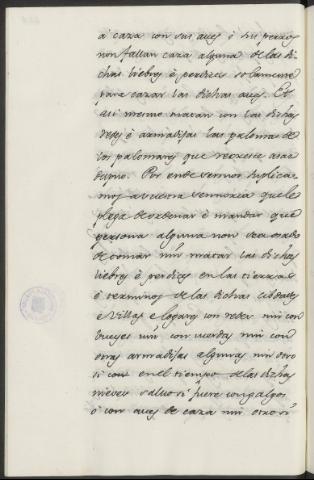 a caza con sus aues ó sus perros
non fallan caza alguna de las di-
chas liebres é perdices solamente
para cazar las dichas aues. Et
asi mesmo matan con las dichas
redes é armadijas las palomas de
los palomares que recresce asaz
dapno. Por ende señor suplica-
mos a vuestra sennoria que le
plega de ordenar é mandar que
persona alguna non sea osado
de tomar nin matar las dichas
liebres é perdices en las tierras
é terminos de las dichas cibdades
é villas é logares con redes nin con
bueyes nin con cuerdas nin con
otras armadijas algunas nin otro
si con en el tiempo de las dichas
nieves saluo si fuere con galgos
ó con aues de caza nin otro si